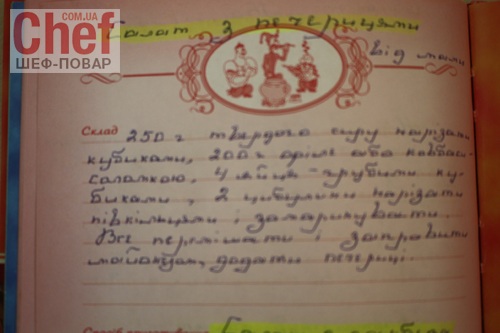 .com.ua
Chef
ШЕФ-ПОВАР
Салат з печерицями
від мами
Склад 250 г твердого сиру нарізати
кубиками, 200 г або ковбас-
соломкою, 4 яйця - грубими ку-
биками, 2 цибулини нарізати
півкільцями і замаринувати.
Все перемішати і заправити
майонезом, додати печериці.